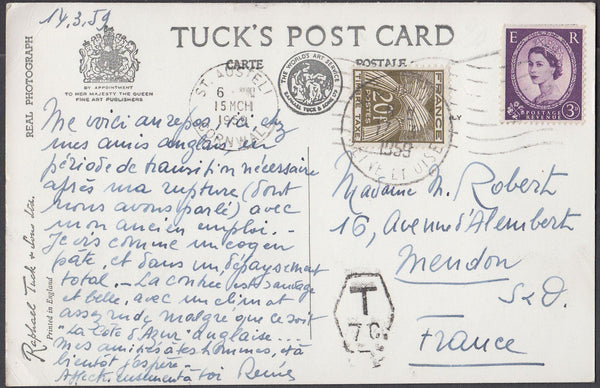 14.3.59
TUCK'S POST CARD
CARTE POSTALE
BY APPOINTMENT
TO HER MAJESTY THE QUEEN
FINE ART PUBLISHERS
REAL PHOTOGRAPH
THE WORLD'S ART SERVICE
RAPHAEL TUCK & SONS LTD
ST. AUSTELL
6
15 MCH
1959
CORNWALL
Me voici au repos chez
mes amis anglais en
période de transition nécessaire
après ma rupture (dont
nous avons parlé) avec
mon ancien emploi...
Je vis comme un coq en
pâte, et dans un dépaysement
total... La contrée est sauvage
et belle, avec un climat
assez rude malgré que ce soit
"La Côte d'Azur" anglaise...
mes amitiés à tes hommes, et à
bientôt j'espère.
Affectueusement à toi
Raphael Tuck & Sons Ltd.
Printed in England
FRANCE
POSTES
20F
TAXE
1959
SEINE ET OISE
E R
POSTAGE
REVENUE
3D
Madame M. Robert
16, Avenue d'Alembert
Meudon
S & O.
France
T
7C